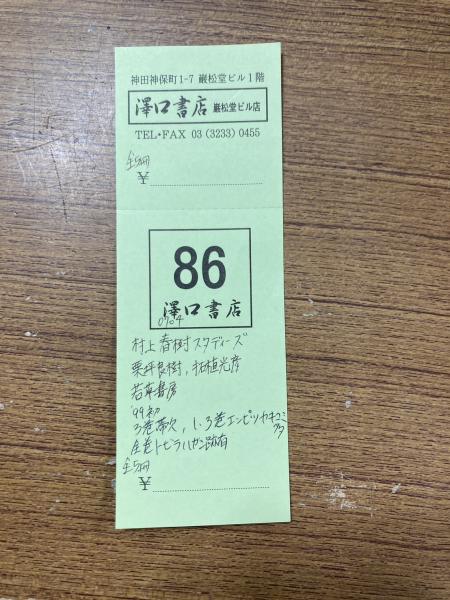 神田神保町1-7 巌松堂ビル1階
澤口書店 巌松堂ビル店
TEL・FAX 03 (3233) 0455
全5冊
¥
86
澤口書店
0904
村上春樹スタディーズ
栗坪良樹, 柘植光彦
若草書房
'99初
3巻帯欠, 1・3巻エンピツカキコミ
全巻トビラハガシ跡有
全5冊
¥